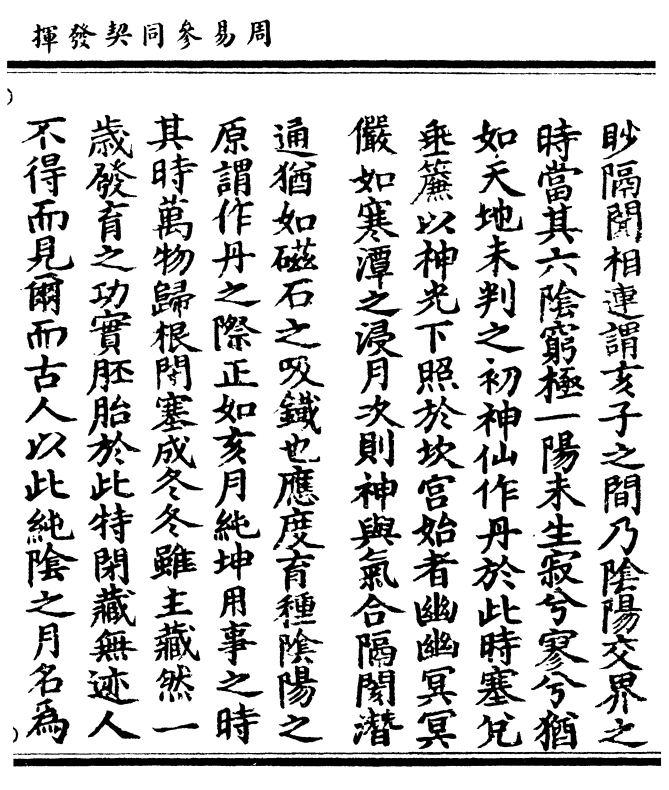 周易參同契發揮
眇隔閡相連謂亥子之間乃陰陽交界之
時當其六陰窮極一陽未生寂兮寥兮猶
如天地未判之初神仙作丹於此時塞兌
垂簾以神光下照於坎宮始者幽幽冥冥
儼如寒潭之浸月次則神與氣合隔閡潛
通猶如磁石之吸鐵也應度育種陰陽之
原謂作丹之際正如亥月純坤用事之時
其時萬物歸根閉塞成冬冬雖主藏然一
歲發育之功實胚胎於此特閉藏無迹人
不得而見爾而古人以此純陰之月名為